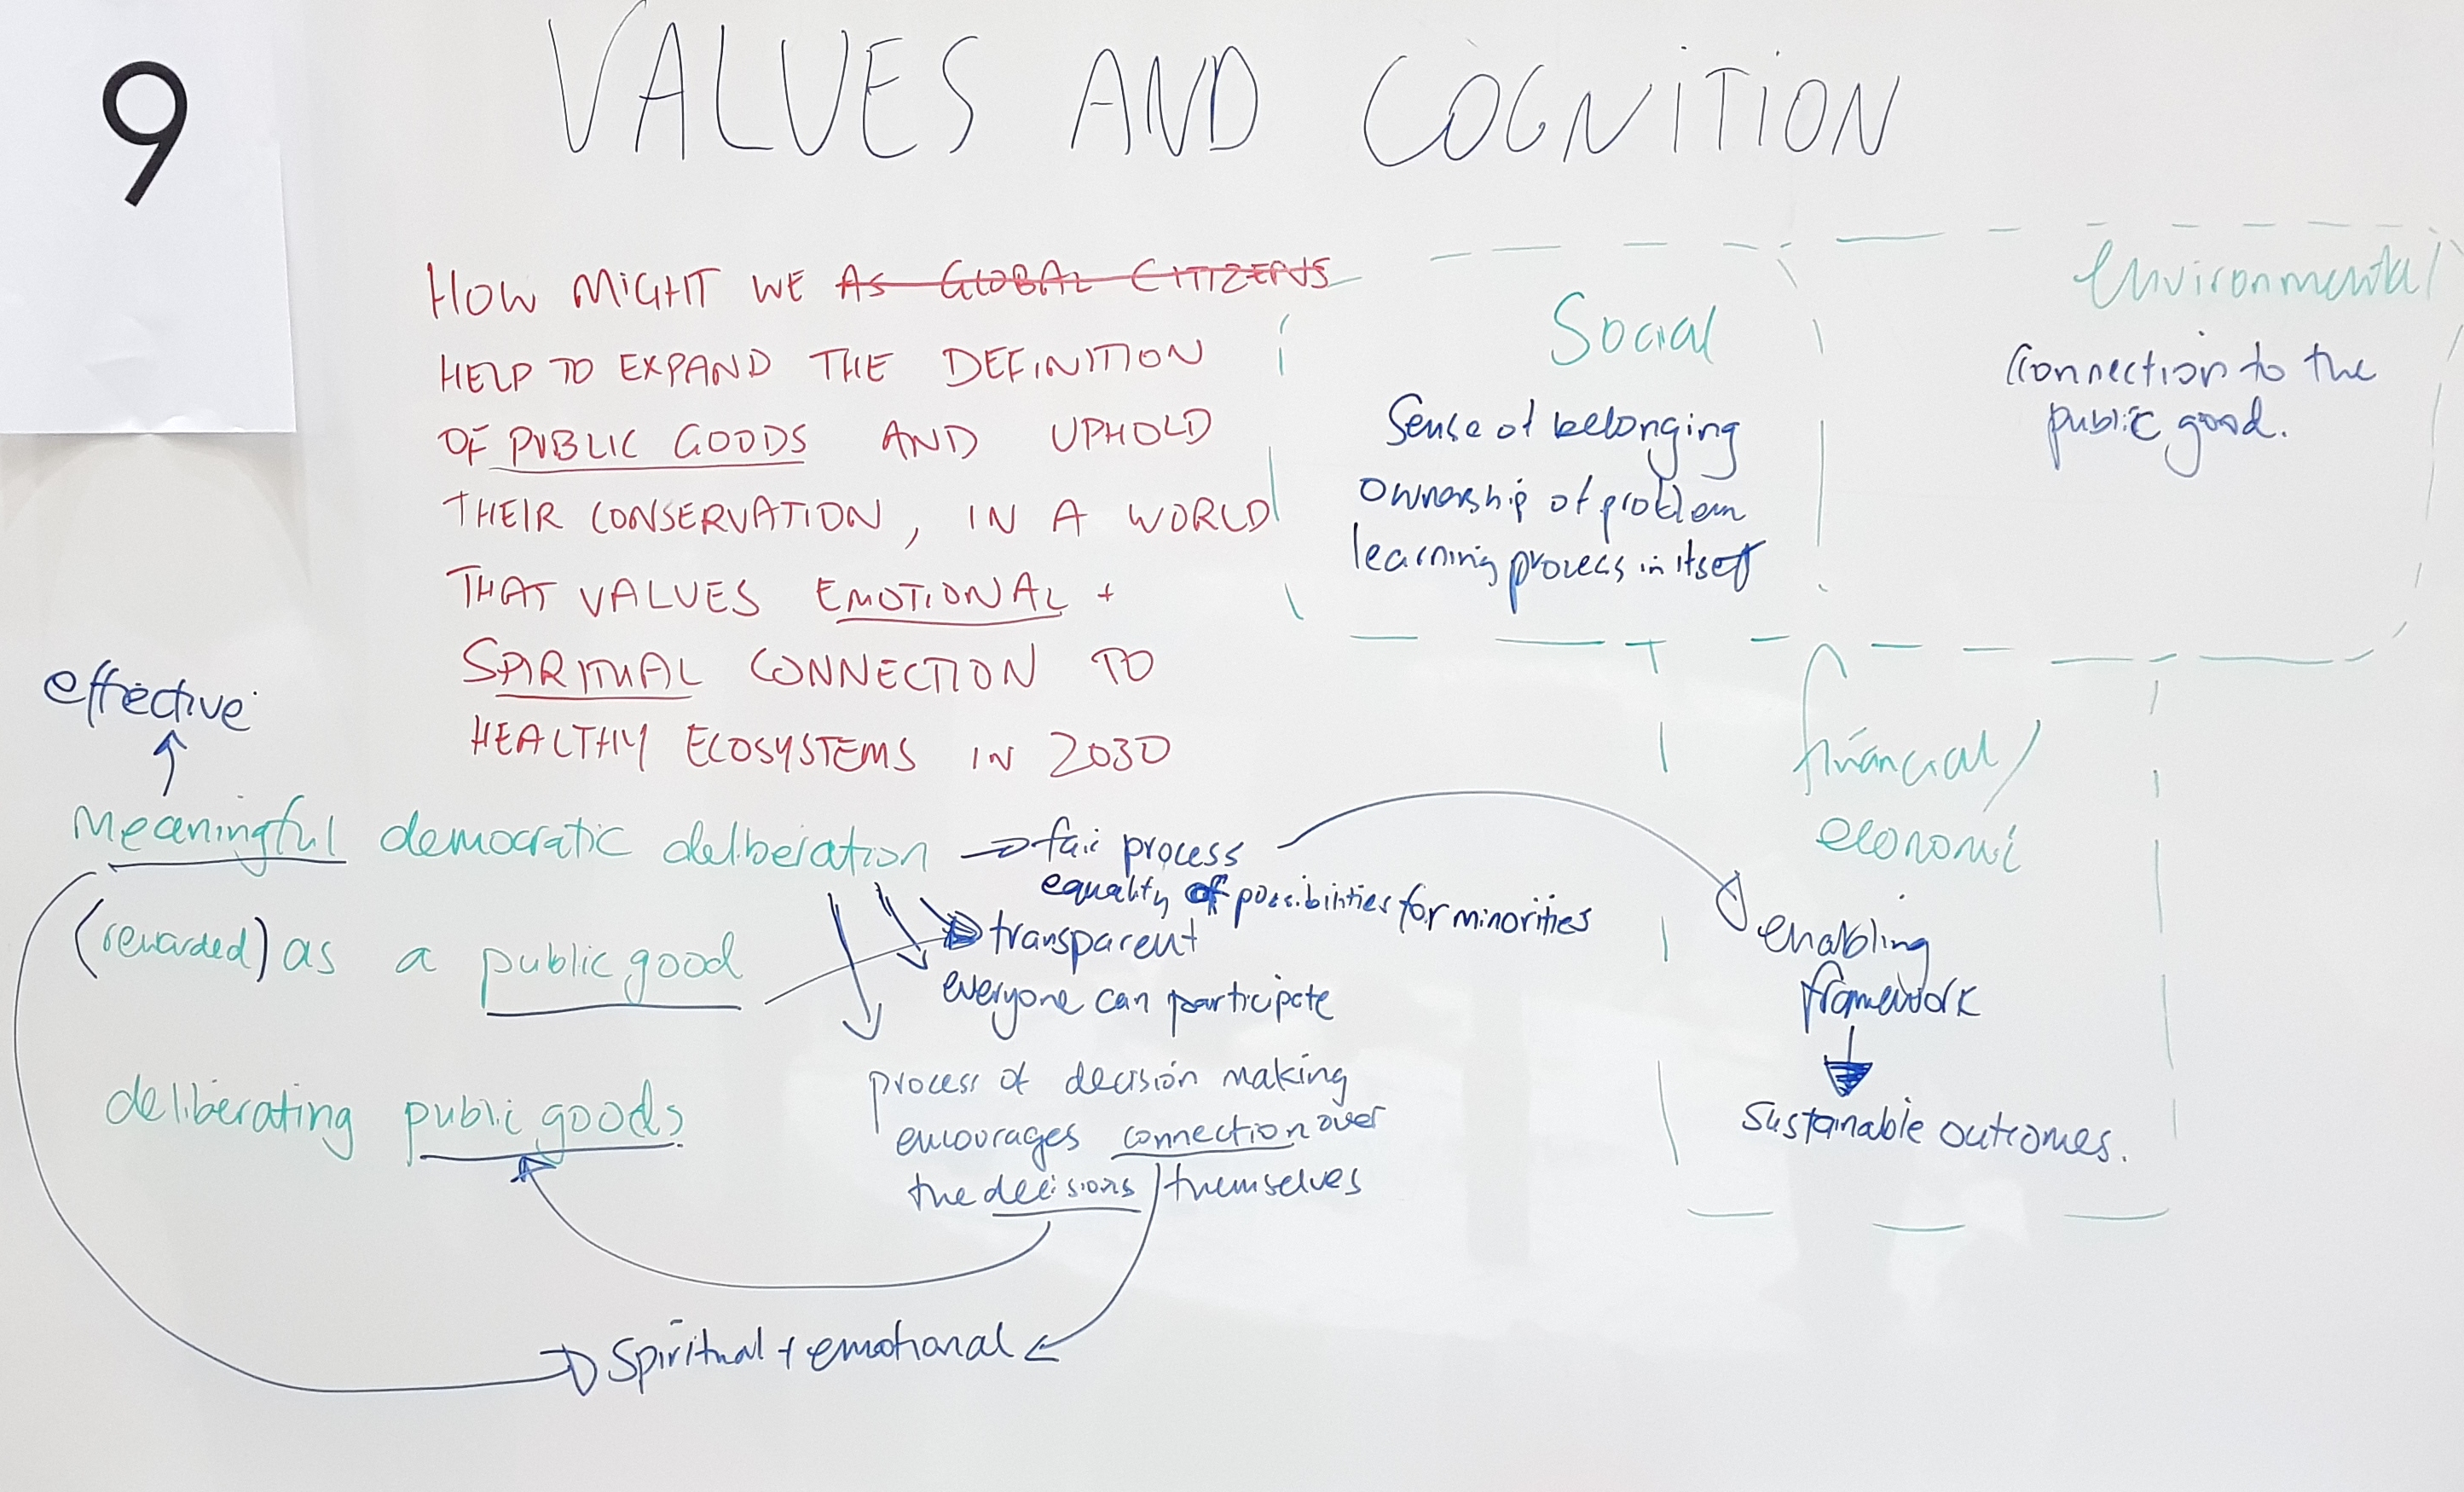 9
VALUES AND COGNITION
HOW MIGHT WE AS GLOBAL CITIZENS
HELP TO EXPAND THE DEFINITION
OF PUBLIC GOODS AND UPHOLD
THEIR CONSERVATION, IN A WORLD
THAT VALUES EMOTIONAL +
SPIRITUAL CONNECTION TO
HEALTHY ECOSYSTEMS IN 2030
Social
Sense of belonging
Ownership of problem
learning process in itself
environmental
Connection to the
public good.
financial/
economic
enabling
framework
Sustainable outcomes.
effective
Meaningful democratic deliberation
(rewarded) as a public good
deliberating public goods.
fair process
equality of possibilities for minorities
transparent
everyone can participate
process of decision making
encourages connection over
the decisions themselves
Spiritual + emotional